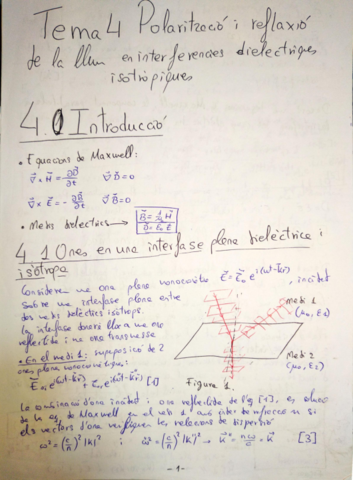 Tema 4 Polarització i reflaxió
de la llum en interferencies dielectriques
isotròpiques
4.0 Introducció
• Equacions de Maxwell:
∇×H = ∂D/∂t   ∇D=0
∇×E = -∂B/∂t   ∇B=0
• Medis dielectrics → B = μ₀H
D = ε₀E
4.1 Ones en una interfase plana dielèctrica i
isòtropa
Considerem una ona plana monocromàtica E = E₀ e^i(ωt-kr), incident
sobre una interfase plana entre
dos medis dielèctrics isòtrops.
La interfase donarà lloc a una ona
reflectida i una ona transmesa
Medi 1
(μ₀, ε₁)
• En el medi 1: superposició de 2
ones planes monocromàtiques:
Medi 2
(μ₀, ε₂)
[1]
Figura 1.
La combinació d'ona incident i ona reflectida de l'eq [1], és solució
de les eq. de Maxwell en el medi 1 si
els vectors d'ona verifiquen les relacions de dispersió
ω² = (c/n)² |k|² ; ω² = (c/n)² |k'|² → [3]
- 1 -